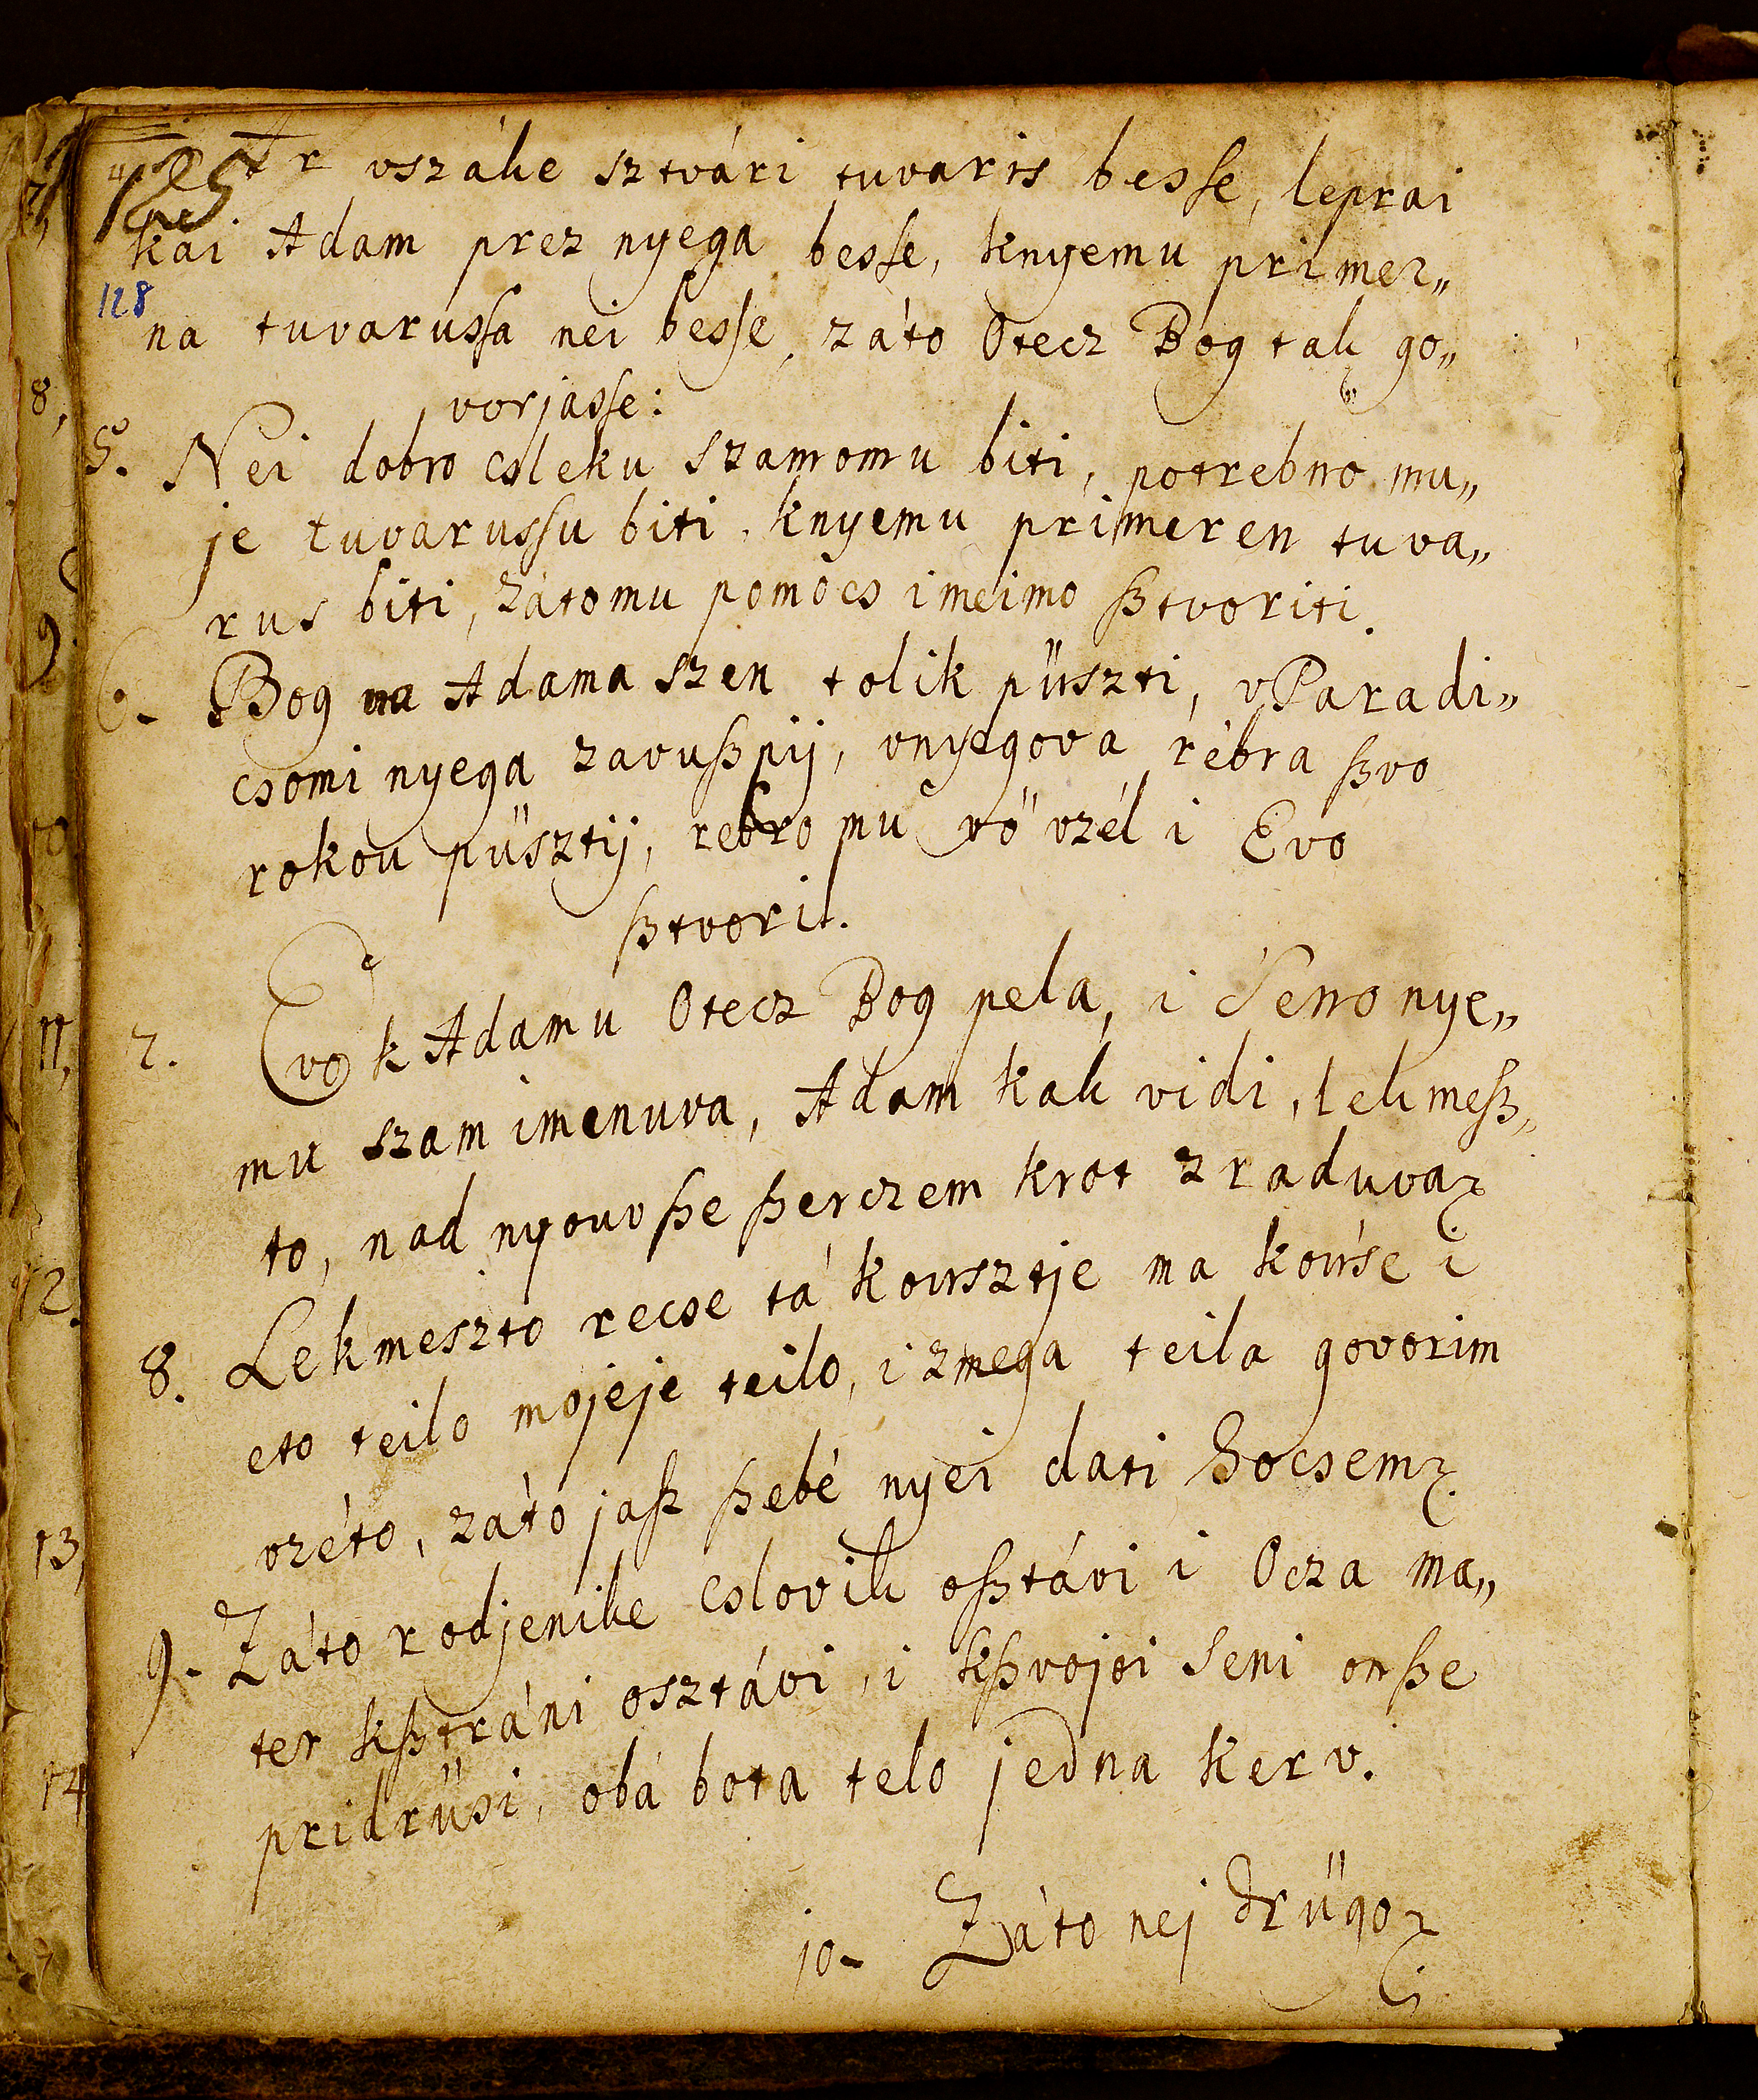 Ar vszáke sztvári tuvaris besse, leprai
kai Adam prez nyega besse, knyemu primer„
128
na tuvarussa nei besse, záto Otecz Bog tak go„
vorjasse:
5. Nei dobro csleku szamomu biti, potrebno mu„
je tuvarussu biti, knyemu primeren tuva„
rus biti, zátomu pomocs imeimo ſztvoriti.
6. Bog na Adama szen tolik püszti, vParadi„
csomi nyega zavuſzpij, vnyegova rébra ſzvo
rokou püsztij, rebro mu vö vzél i Evo
ſztvoril.
7. Evo k Adamu Otecz Bog pela, i Seno nye„
mu szam imenuva, Adam kak vidi, lekmeſz„
to, nad nyouvſze ſzerczem krot zraduva.
8. Lekmeszto recse tá kousztje ma kouse i
eto teilo mojeje teilo, i zmega teila govorim
vzéto, záto jaſz ſzebé nyei dati hocsem.
9. Záto rodjenike cslovik oſztávi i Ocza ma„
ter kſztráni osztávi, i kſzvojoi seni onſze
pridrüsi, obá bota telo jedna kerv.
10. Záto nej drügo
8,
9.
10
11,
12.
13,
14